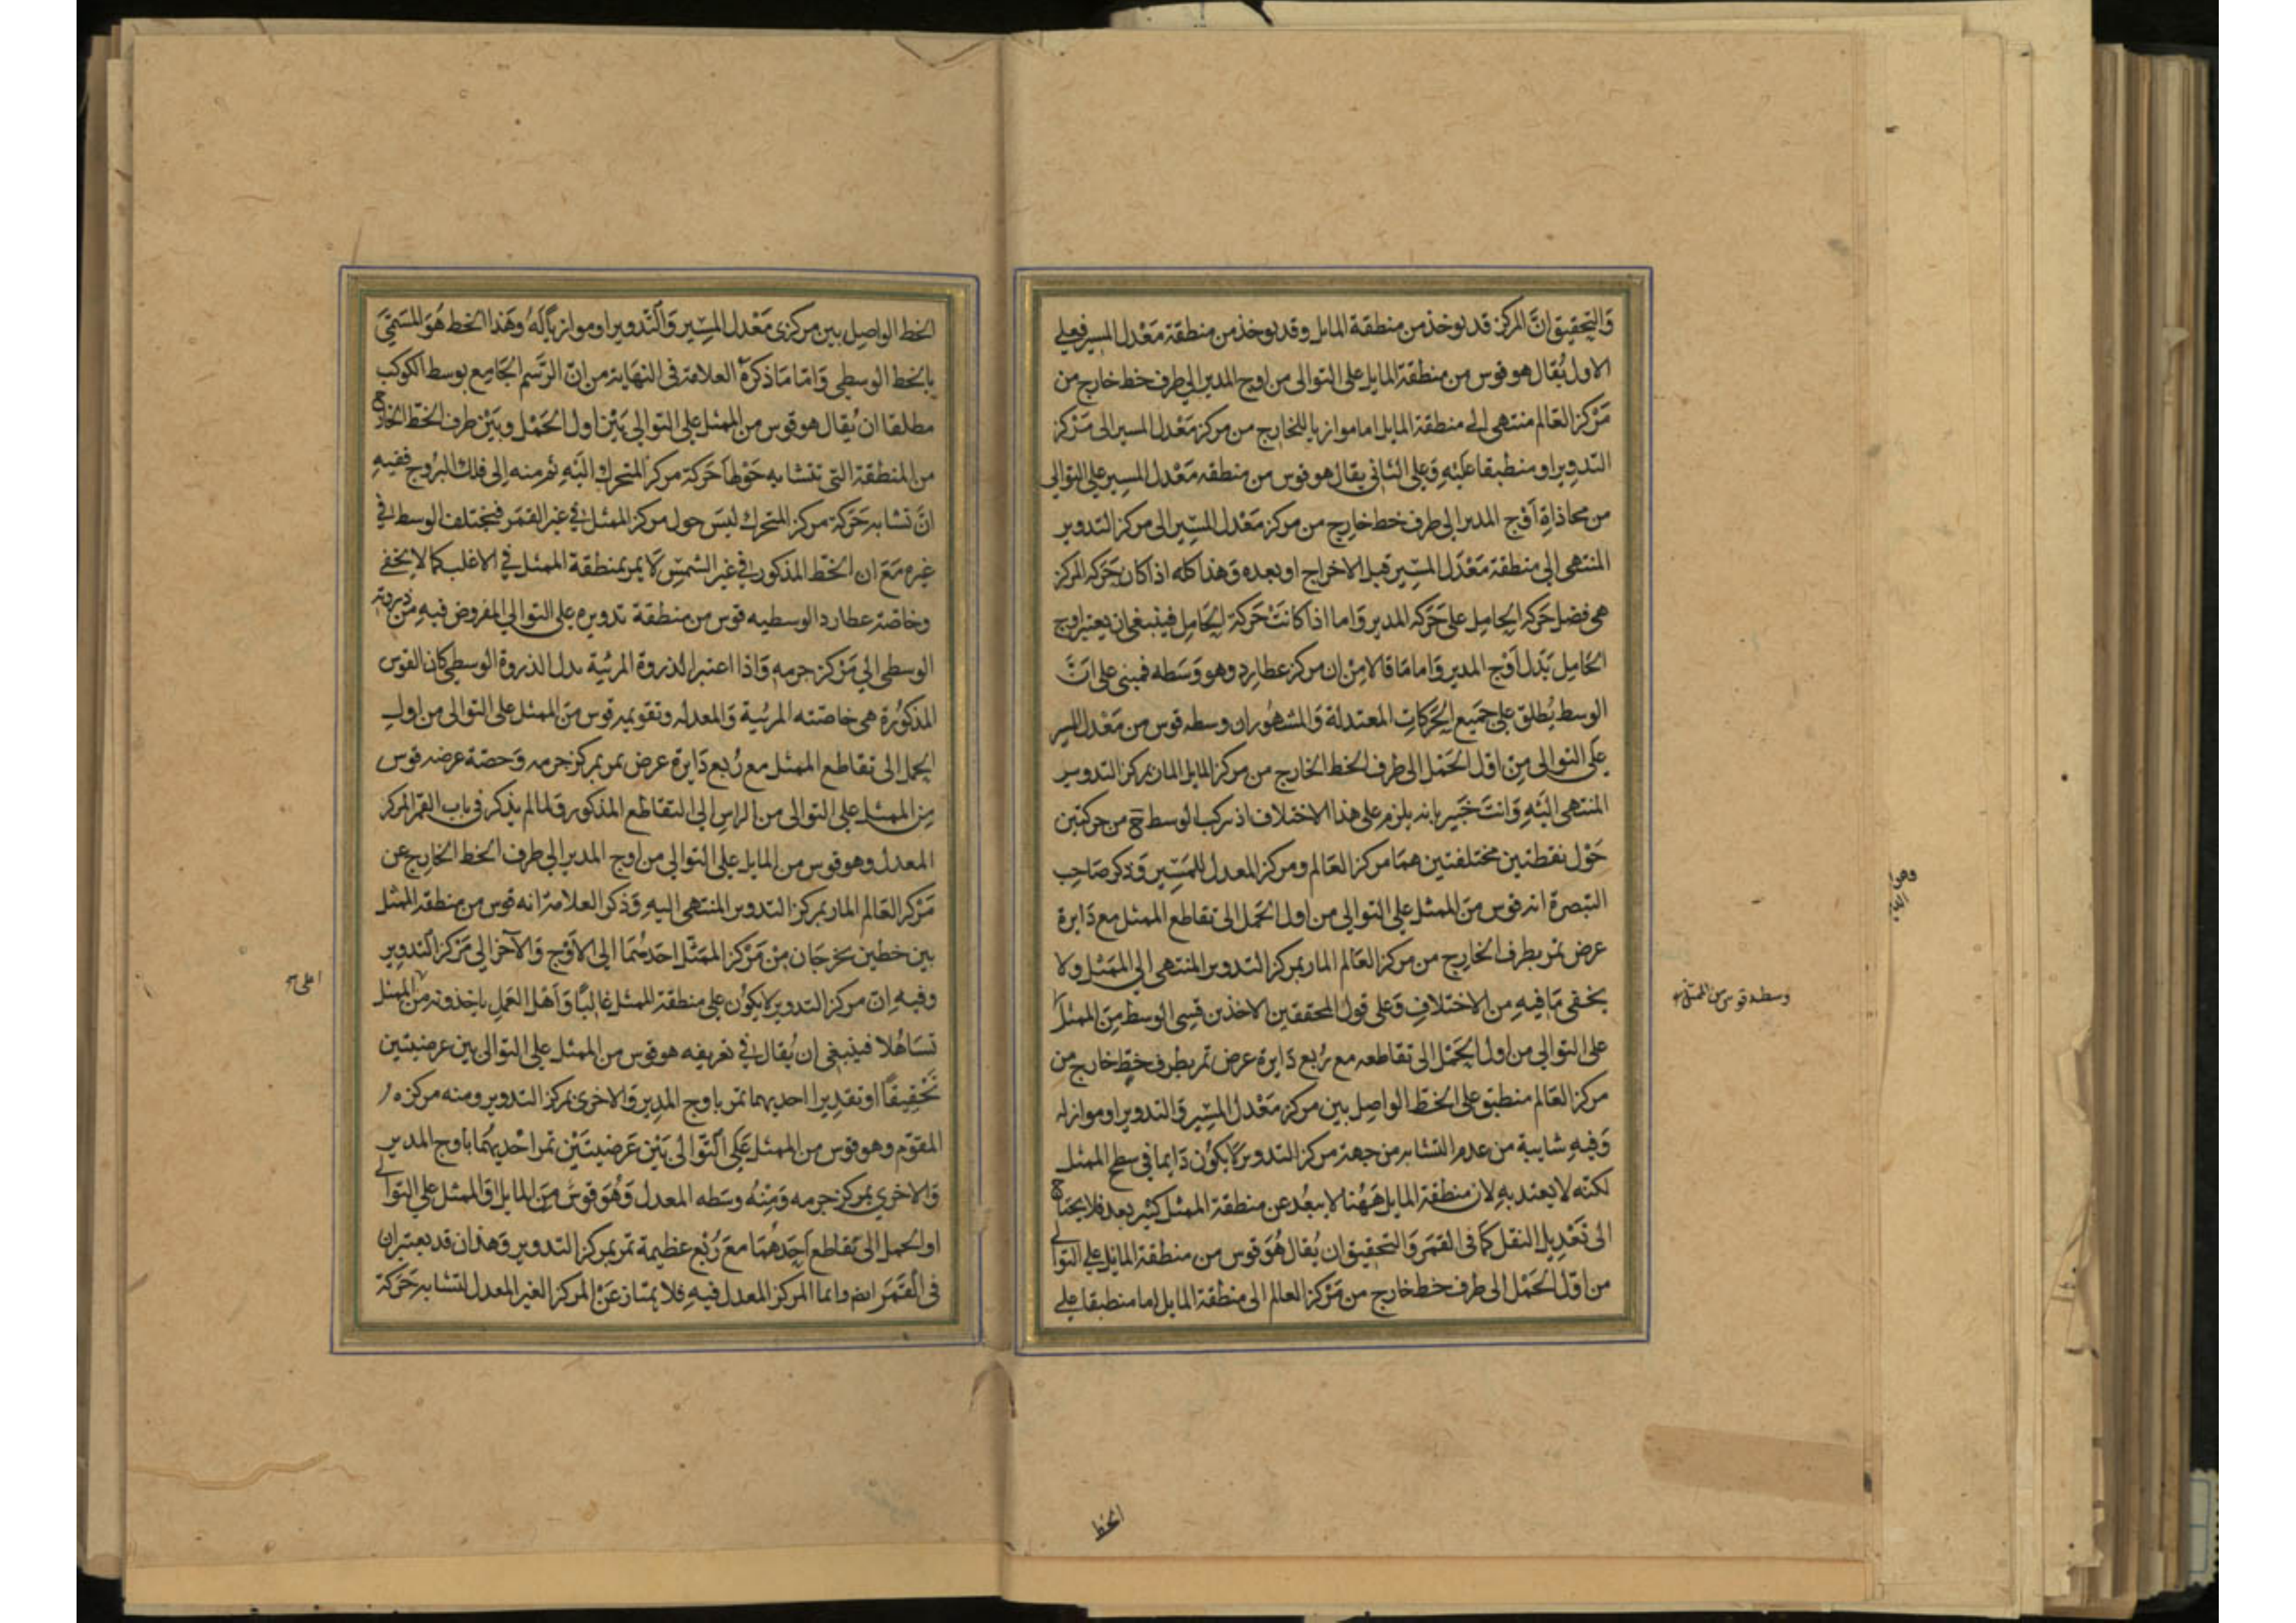 والتحقيق ان المركز قد يوخذ من منطقة المايل وقد يوخذ من منطقة معدل المسير فعلى
الاول يقال هو قوس من منطقة المايل على التوالى من اوج المدير الى طرف خط خارج من
مركز العالم منتهى الى منطقة المايل اما موازيا للخارج من مركز معدل المسير الى مركز
التدوير او منطبقا عليه وعلى الثانى يقال هو قوس من منطقه معدل المسير على التوالى
من محاذاة اوج المدير الى طرف خط خارج من مركز معدل المسير الى مركز التدوير
المنتهى الى منطقة معدل المسير قبل الاخراج او بعده وهذا كله اذا كان حركه المركز
هى فضل حركه الحامل على حركه المدير واما اذا كانت حركة الحامل فينبغى ان يعتبر اوج
الحامل بدل اوج المدير واما ما قالا من ان مركز عطارد وهو وسطه فمبنى على ان
الوسط يطلق على جميع الحركات المعتدلة والمشهور ان وسطه قوس من معدل المسير
على التوالى من اول الحمل الى طرف الخط الخارج من مركز المايل المار بمركز التدوير
المنتهى اليه وانت خبير بانه يلزم على هذا الاختلاف اذ تركب الوسط ح من حركتين
حول نقطتين مختلفتين هما مركز العالم ومركز المعدل للمسير وذكر صاحب
التبصرة انه قوس من الممثل على التوالى من اول الحمل الى تقاطع الممثل مع دايرة
عرض تمر بطرف الخارج من مركز العالم المار بمركز التدوير المنتهى الى الممثل ولا
يخفى ما فيه من الاختلاف وعلى قول المحققين الاخذين قسى الوسط من الممثل
وسطه قوس من الممثل
على التوالى من اول الحمل الى تقاطعه مع ربع دايرة عرض تمر بطرف خط خارج من
مركز العالم منطبق على الخط الواصل بين مركز معدل المسير والتدوير او مواز له
وفيه شايبة من عدم التشابه من جهة مركز التدوير لا يكون دايما فى سطح الممثل
لكنه لا يعتد به لان منطقة المايل ههنا لا يبعد عن منطقة الممثل كثير بعد فلا يحتاج
الى تعديل النقل كما فى القمر والتحقيق ان يقال هو قوس من منطقة المايل على التوالى
من اول الحمل الى طرف خط خارج من مركز العالم الى منطقة المايل اما منطبقا على
الخط
الخط الواصل بين مركزى معدل المسير والتدوير او موازيا له وهذا الخط هو المسمى
بالخط الوسطى واما ما ذكره العلامة فى النهاية من ان الرسم الجامع بوسط الكوكب
مطلقا ان يقال هو قوس من الممثل على التوالى بين اول الحمل وبين طرف الخط الخارج
من المنطقة التى تتشابه حولها حركة مركز المتحرك اليه ثم منه الى فلك البروج ففيه
ان تشابه حركة مركز المتحرك ليس حول مركز الممثل فى غير القمر فيختلف الوسط فى
غيره مع ان الخط المذكور فى غير الشمس لا يمر بمنطقة الممثل فى الاغلب كما لا يخفى
وخاصة عطارد الوسطيه قوس من منطقة تدويره على التوالى المفروض فيه من ذروته
الوسطى الى مركز جرمه واذا اعتبر الذروة المرئية بدل الذروة الوسطى كان القوس
المذكورة هى خاصته المرئية والمعدله وتقويمه قوس من الممثل على التوالى من اول
الحمل الى تقاطع الممثل مع ربع دايرة عرض تمر بمركز جرمه وحصة عرضه قوس
من الممثل على التوالى من الراس الى التقاطع المذكور وقلما لم يذكر فى باب القمر المركز
المعدل وهو قوس من المايل على التوالى من اوج المدير الى طرف الخط الخارج عن
مركز العالم المار بمركز التدوير المنتهى اليه وذكر العلامة انه قوس من منطقة الممثل
بين خطين يخرجان من مركز الممثل احدهما الى الاوج والآخر الى مركز التدوير
وفيه ان مركز التدوير لا يكون على منطقة الممثل غالبا واهل العمل ياخذونه من الممثل
تساهلا فينبغى ان يقال فى تعريفه هو قوس من الممثل على التوالى بين عرضيتين
تحقيقا او تقديرا احديهما تمر باوج المدير والاخرى بمركز التدوير ومنه مركزه
المقوم وهو قوس من الممثل على التوالى بين عرضيتين تمر احديهما باوج المدير
والاخرى بمركز جرمه ومنه وسطه المعدل وهو قوس من المايل او الممثل على التوالى
اول الحمل الى تقاطع احدهما مع ربع عظيمة تمر بمركز التدوير وهذان قد يعتبران
فى القمر ايضا واما المركز المعدل فيه فلا يمتاز عن المركز الغير المعدل لتشابه حركة